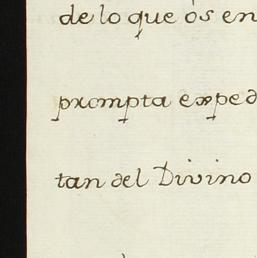 de lo que òs en
prompta exped
tan del Divino